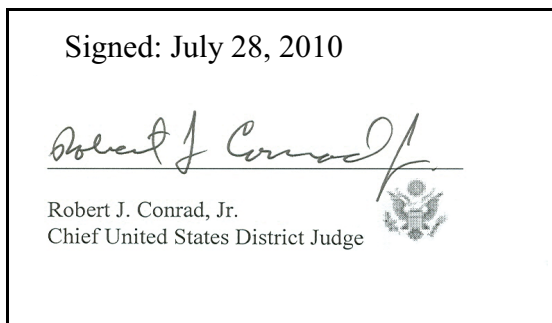 Signed: July 28, 2010
Robert J Conrad Jr.
Robert J. Conrad, Jr.
Chief United States District Judge